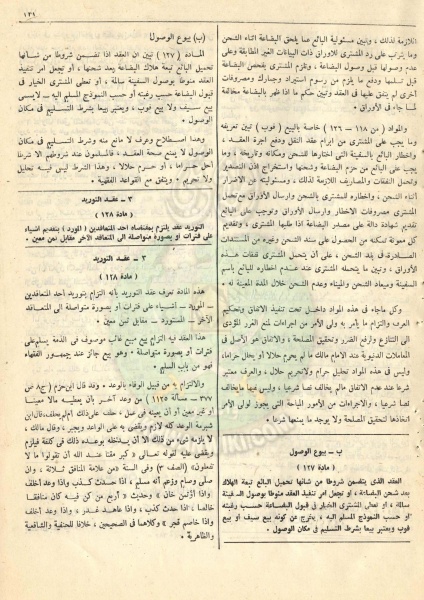 ١٣٩
اللازمة لذلك ، وتبين مسئولية البائع عما يلحق البضاعة اثناء الشحن
وما يترتب على رد المشترى للاوراق ذات البيانات الغير المطابقة وعلى
عدم وصولها قبل وصول البضاعة ، وتلزم المشترى بفحص البضاعة
قبل تسلمها ودفع ما يلزم من رسوم استيراد وجمارك ومصروفات
أخرى لم يتفق عليها فى العقد وتبين حكم ما اذا ظهر بالبضاعة مخالفة
لما جاء فى الأوراق .
والمواد ( من ١١٨ — ١٢٦ ) خاصة بالبيع ( فوب ) تبين تعريفه
وما يجب على المشترى من ابرام عقد النقل ودفع اجرة العقد ،
واخطار البائع بالسفينة التى اختارها للشحن ومكانه وتاريخه ، وما
يجب على البائع من حزم البضاعة وشحنها واستخراج اذن التصدير
وتحمل النفقات والمصاريف اللازمة لذلك ، ومسئوليته عن الاضرار
السابقة للشحن ، واخطاره للمشترى بالشحن وارسال الأوراق مع تحمل
المشترى مصروفات الاخطار وارسال الأوراق وتوجب على البائع
تقديم شهادة دالة على مصدر البضاعة اذا طلبها المشترى ، وتقديم
كل معونة تمكنه من الحصول على سند الشحن وغيره من المستندات
الصادرة فى بلد الشحن ، على أن يتحمل المشترى نفقات هذه
الأوراق ، وتبين ما يتحمله المشترى عند عدم اخطاره للبائع باسم
السفينة وميعاد الشحن والميناء وعدم الشحن خلال المدة المعينة له .
وكل ماجاء فى هذه المواد داخل تحت تنفيذ الاتفاق وتحكيم
العرف والتزام ما يأمر به ولى الأمر من اجراءات لمنع الغرر المؤدى
الى التنازع ولرفع الضرر وتحقيق المصلحة ، والاتفاق هو الأصل فى
المعاملات الدنيوية عند الامام مالك ما لم يحرم حلالا أو يحل حراما،
وليس فى هذه المواد تحليل حرام ولا تحريم حلال ، والعرف معتبر
شرعا عند عدم الاتفاق مالم يخالف نصا شرعيا ، وليس فيها ما يخالف
نصا شرعيا ، والاجراءات من الأمور المباحة التى يجوز لولى الأمر
اتخاذها لتحقيق المصلحة ولا يوجد ما يمنعها شرعا .
ب — بيوع الوصول
( مادة ١٢٧ )
العقد الذى يتضمن شروطا من شأنها تحميل البائع تبعة الهلاك
بعد شحن البضاعة ، أو تجعل أمر تنفيذ العقد منوطا بوصول السفينة
سالة ، أو تعطى المشترى الخيار فى قبول البضاعة حسب رغبته
أو حسب النموذج المسلم اليه ، يخرج عن كونه بيع سيف أو بيع
فوب ويعتبر بيعا بشرط التسليم فى مكان الوصول .
(ب) بيوع الوصول
المـادة (١٢٧) تبين ان العقد اذا تضمن شروطا من شأنها
تحميل البائع تبعة هلاك البضاعة بعد شحنها ، أو تجعل امر تنفيذ
العقد منوطا بوصول السفينة سالمة ، أو تعطى المشترى الخيار فى
قبول البضاعة حسب رغبته أو حسب النموذج المسلم اليه — لايسمى
بيع سيف ولا بيع فوب ، ويعتبر بيعا بشرط التسليم فى مكان
الوصول .
وهذا اصطلاح وعرف لا مانع منه وشرط التسليم فى مكان
الوصول لا يمنع صحة العقد ، فالمسلمون عند شروطهم الا شرطا
أحل حراما ، أو حرم حلالا ، وهذا الشرط ليس فيه تحليل
ولا تحريم . ويتفق مع القواعد الفقهية .
٣ — عقـد التوريد
( مادة ١٢٨ )
التوريد عقد يلتزم بمقتضاه أحد المتعاقدين ( المورد ) بتقديم أشياء
على فترات أو بصورة متواصلة الى المتعاقد الآخر مقابل ثمن معين .
٣ — عقـد التوريد
( مادة ١٢٨ )
هذه المادة تعرف عقد التوريد بأنه التزام بتوريد أحد المتعاقدين
— المورد — أشياء على فترات أو بصورة متواصلة الى المتعاقد
الآخر — المستورد — مقابل ثمن معين .
هذا العقد فيه التزام ببيع مبيع غائب موصوف فى الذمة يسلم على
فترات أو بصورة متواصلة ، وهو بيع جائز عند جمهور الفقهاء
فهو من باب السلم
والالتزام به من قبيل الوفاء بالوعد . وقد قال ابن حزم ( ج٨ ص
٣٧٧ — مسألة ١١٢٥ ) من وعد آخر بأن يعطيه مالا معينا
أو غير معين أو أن يعينه فى عمل ، حلف على ذلك أم لم يحلف،قال ابن
شبرمة الوعد كله لازم ويقضى به على الواعد ويجبر ، وقال مالك ،
لا يلزمه شىء من ذلك الا أن يدخله بوعـده ذلك فى كلفة فيلزم
ويقضى عليه لقوله تعـالى « كبر مقتا عند الله أن تقولوا ما لا
تفعلون» (الصف ٣) وفى السنة «من علامة المنافق ثلاثة ، وان
صلى وصام وزعم أنه مسلم ، اذا حـدث كـذب واذا وعد أخلف
واذا اؤتمن خان » وحديث « أربع من كن فيه كان منافقا
خالصا ، اذا حدث كذب ، واذا عاهـد غـدر ، واذا وعد أخلف
واذا خاصم فجر » وكلاهما فى الصحيحين ، خلافا للحنفية والشافعية
والظاهرية .